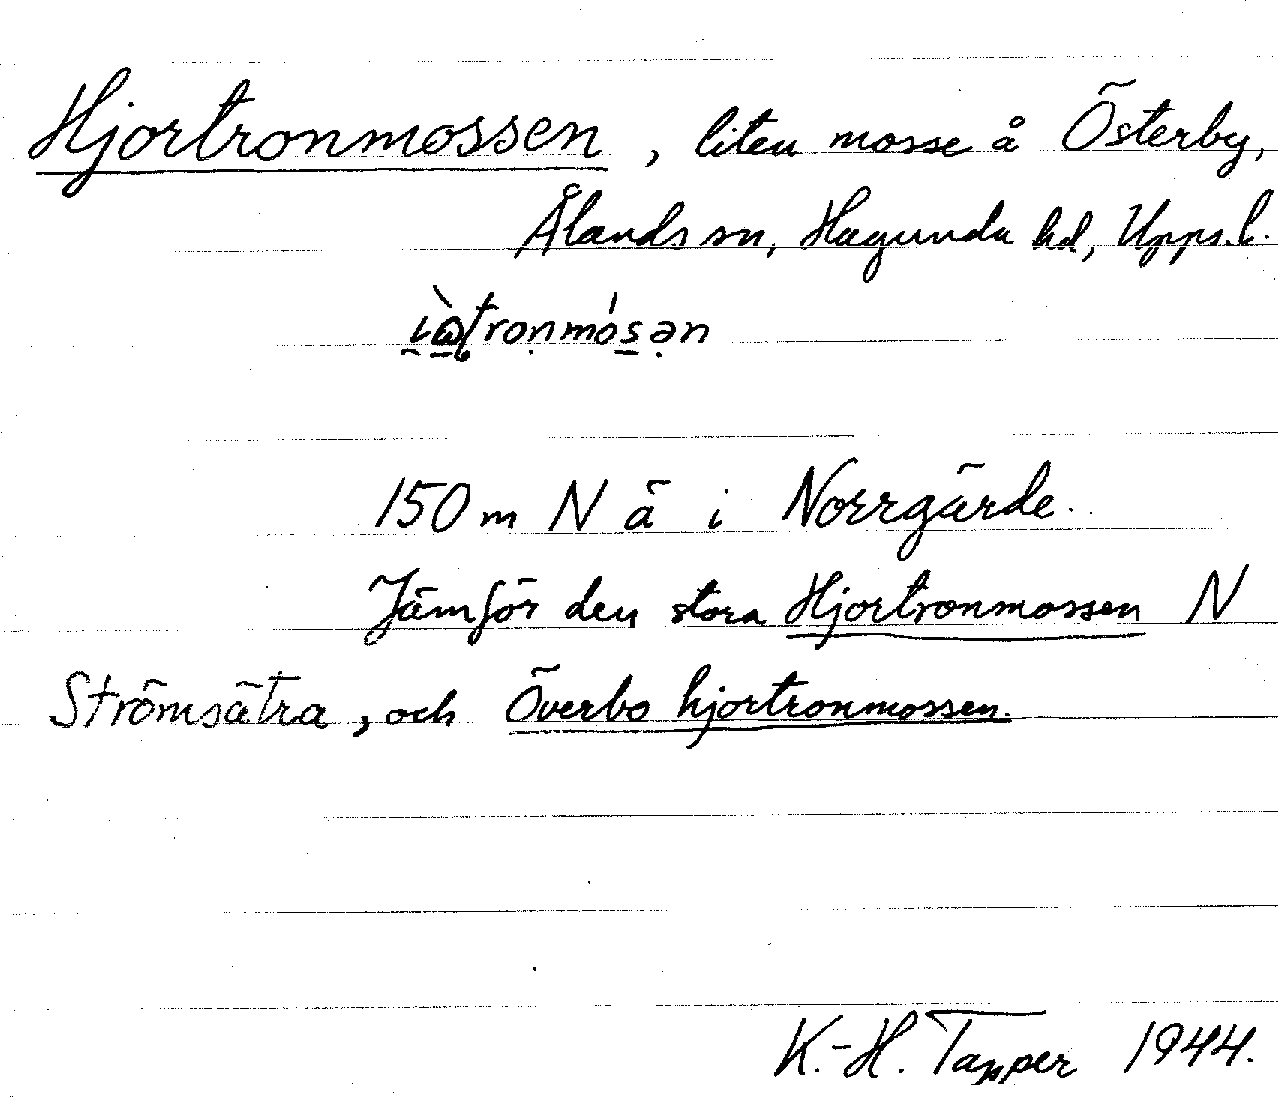 Hjortronmossen, liten mosse å Österby,
Ålands sn, Hagunda hd, Upps. l.
150 m N ä i Norrgärde.
Jämför den stora Hjortronmossen N
Strömsätra, och Överbo hjortronmossen.
K.-H. Tapper 1944.